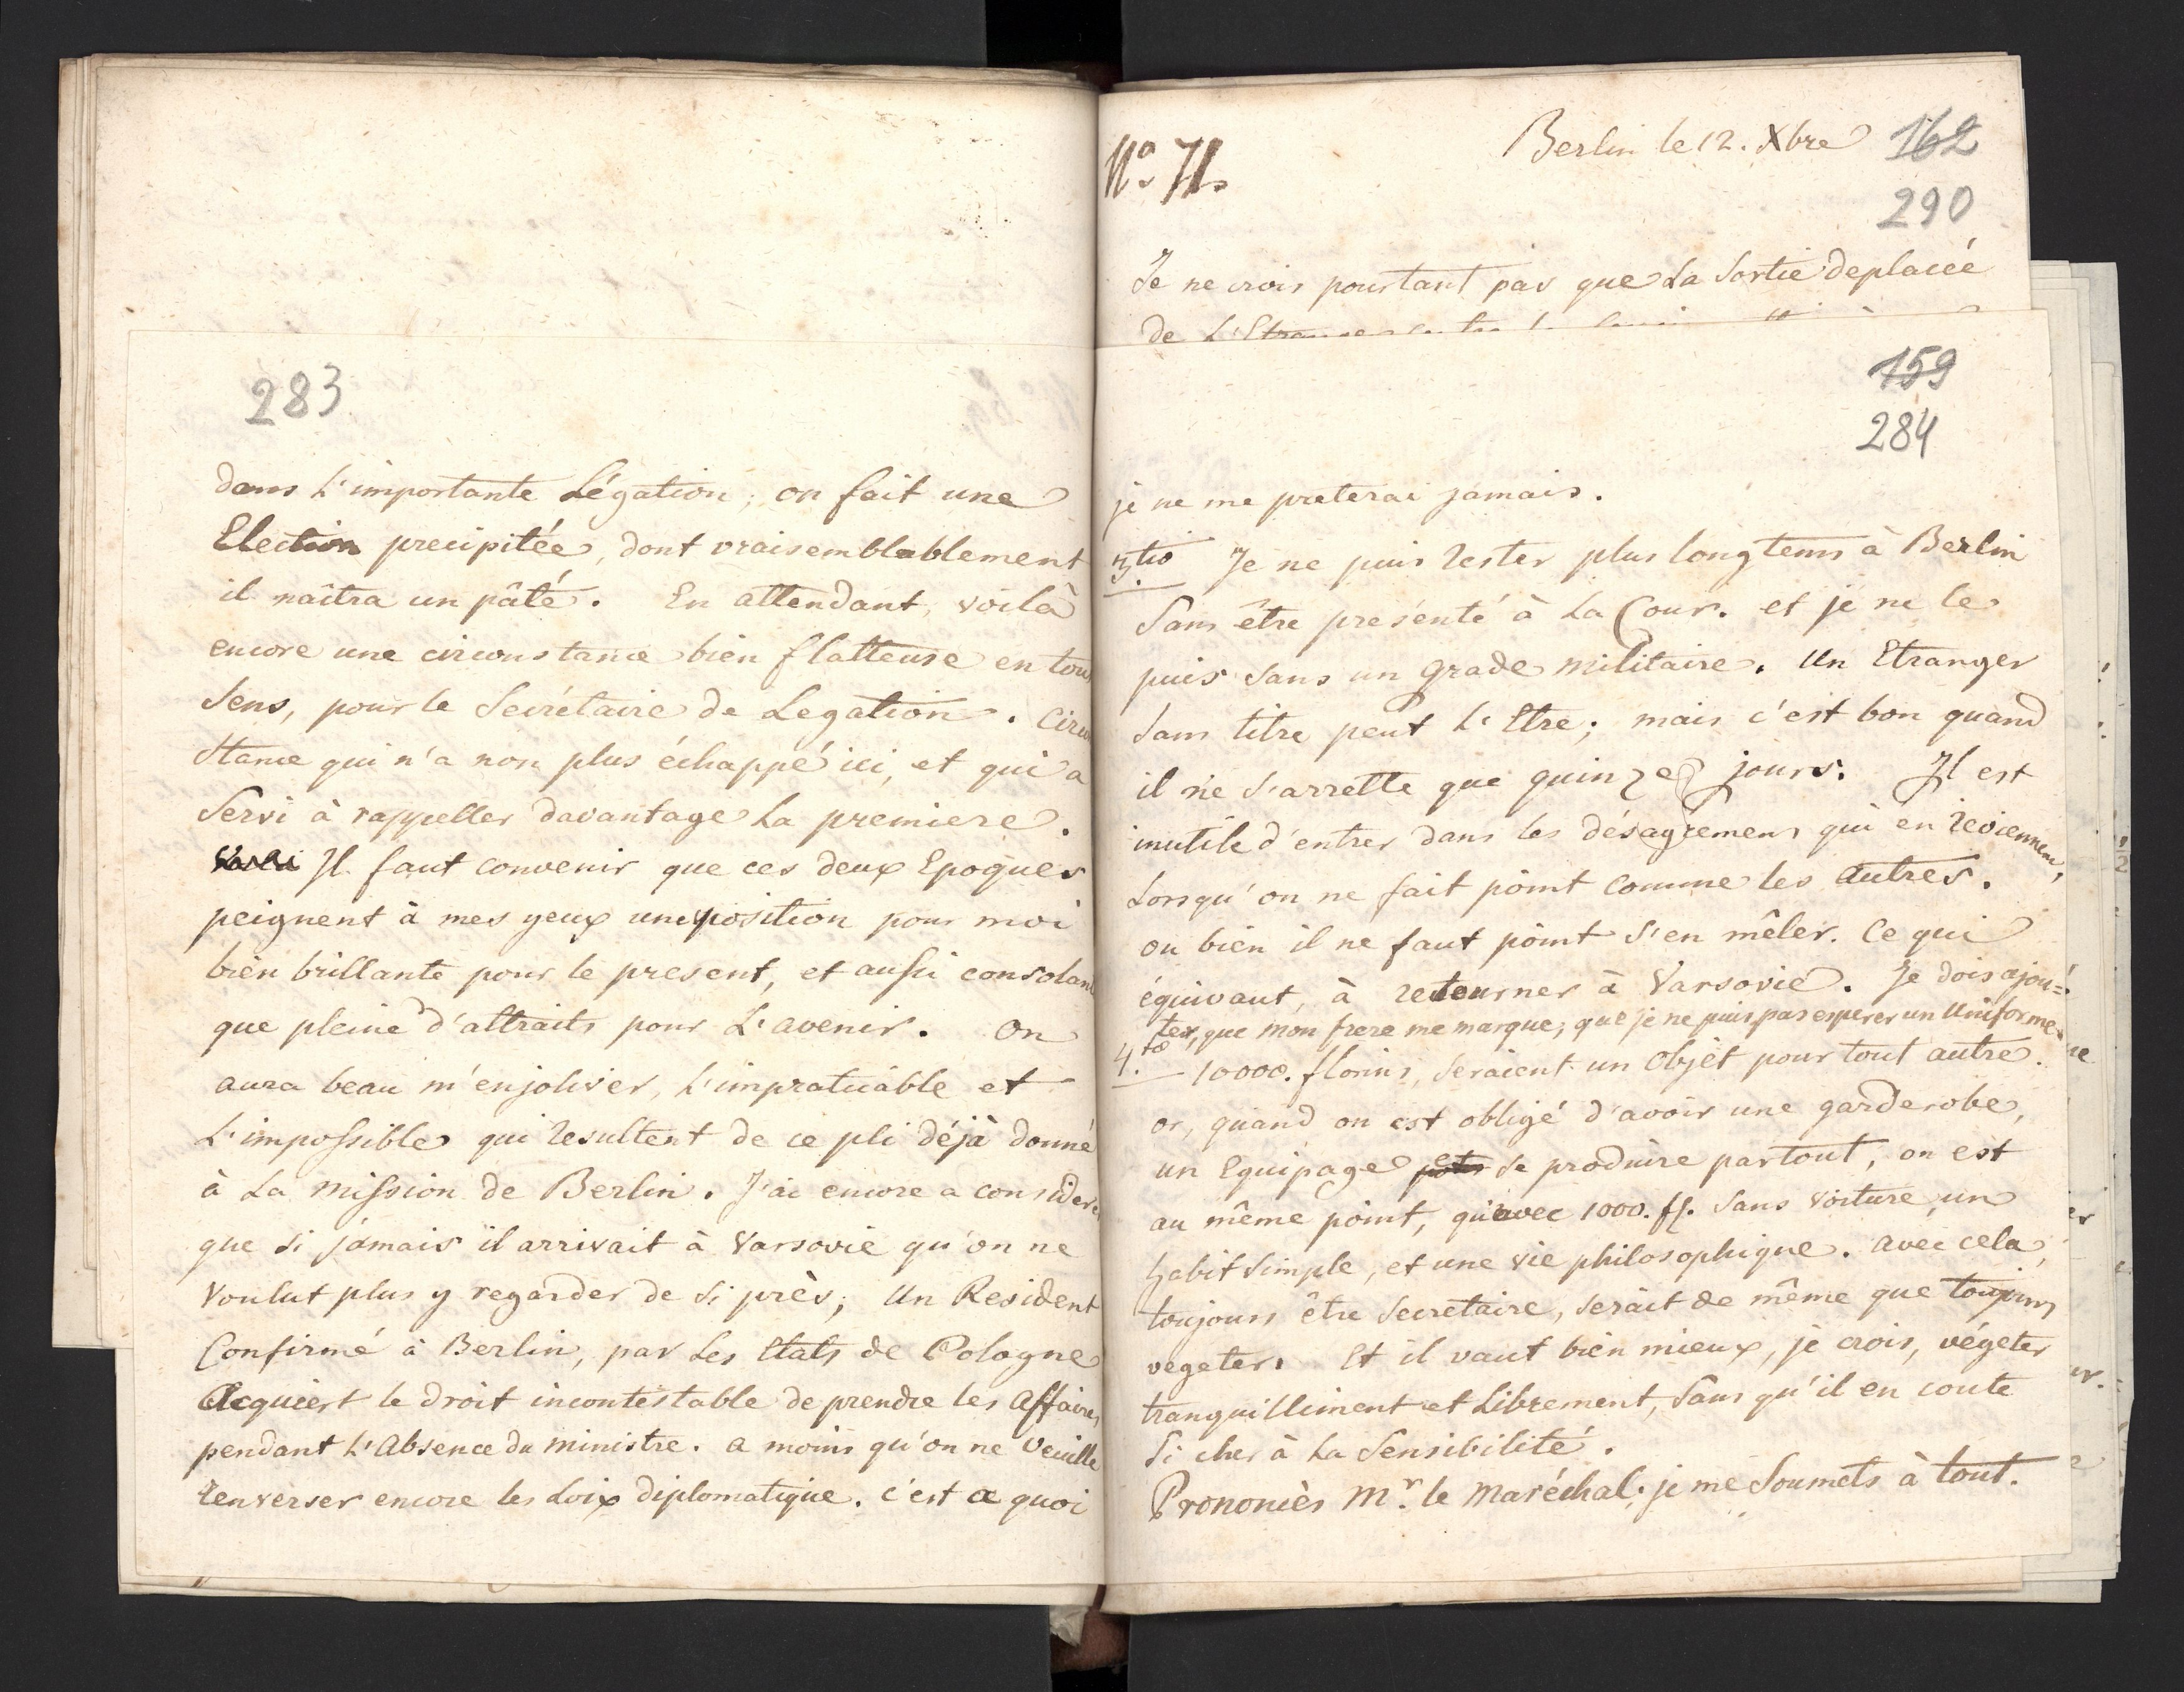 283
dans L'importante Légation; on fait une
Election precipitée, dont vraisemblablement
il naîtra un pâté. En attendant, voilà
encore une circonstance bien flatteuse en tous
Sens, pour le Secrétaire de Legation. Circon
stance qui n'a non plus échappé ici, et qui a
Servi à rappeller davantage La premiere.
Il faut convenir que ces deux Epoques
peignent à mes yeux une position pour moi
bien brillante pour le present, et aussi consolante
que pleine d'attraits pour L'avenir. On
aura beau m'enjoliver, L'impraticable et
L'impossible qui resultent de ce pli déjà donné
à La Mission de Berlin. J'ai encore a considerer
que si jamais il arrivait à Varsovie qu'on ne
Voulut plus y regarder de si près; Un Resident
Confirmé à Berlin, par Les Etats de Pologne
Acquiert le droit incontestable de prendre les Affaires
pendant L'Absence du ministre. a moins qu'on ne Veuille
renverser encore les Loix diplomatique. c'est a quoi
No. 71.
Berlin le 12. Xbre
162
290
Je ne crois pourtant pas que La Sortie deplacée
de L'Etranger
159
284
je ne me preterai jamais.
3.tio Je ne puis rester plus longtems à Berlin
Sans être presénté à La Cour. et je ne le
puis sans un grade militaire. Un Etranger
Sans titre peut L'Etre; mais c'est bon quand
il ne s'arrette que quinze jours. Il est
inutile d'entrer dans les désagremens qui en reviennent,
Lorsqu'on ne fait point comme les Autres.
ou bien il ne faut point s'en mêler. Ce qui
équivaut, à retourner à Varsovie. Je dois ajou=
ter, que mon frere me marque; que je ne puis pas esperer un Uniforme.
4.to 10000. florins, seraient un Objet pour tout autre.
or, quand on est obligé d'avoir une garderobe,
un Equipage et se produire partout, on est
au même point, qu'avec 1000. ff. Sans voiture, un
habit simple, et une vie philosophique. avec cela,
toujours être Secretaire, serait de même que toujours
vegeter. Et il vaut bien mieux, je crois, végeter
tranquilliment et Librement, sans qu'il en coute
Si cher à La Sensibilité.
Prononcès Mr. le Maréchal; je me Soumets à tout.